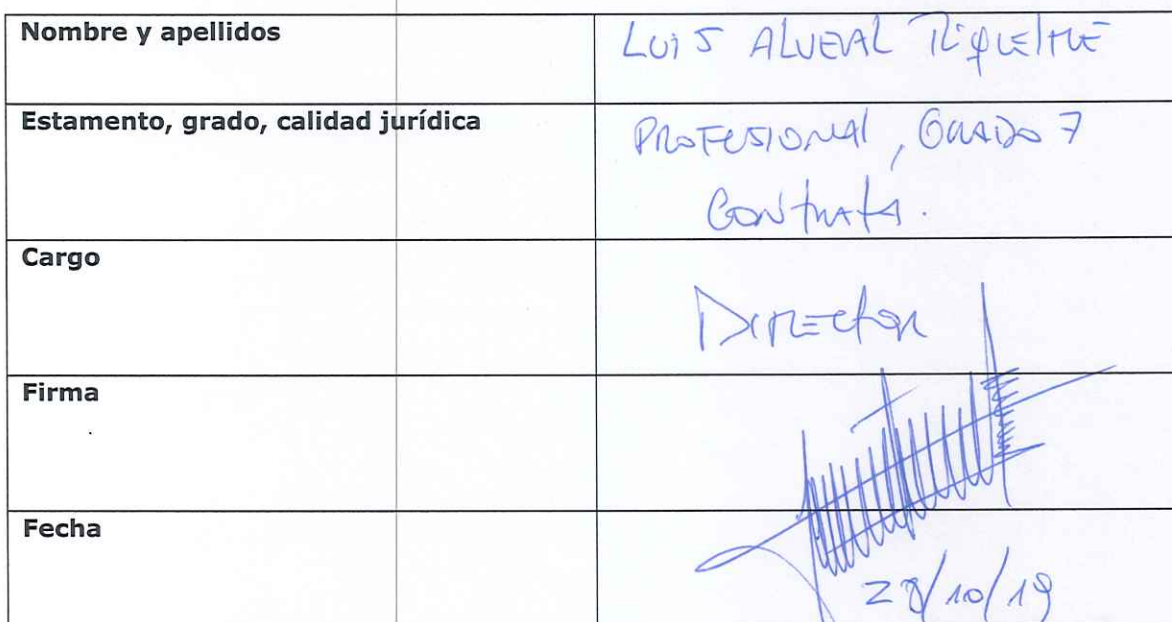 Nombre y apellidos
LUIS ALVEAL RIQUELME
Estamento, grado, calidad jurídica
PROFESIONAL, GRADO 7
Contrata.
Cargo
Director
Firma
Fecha
28/10/19